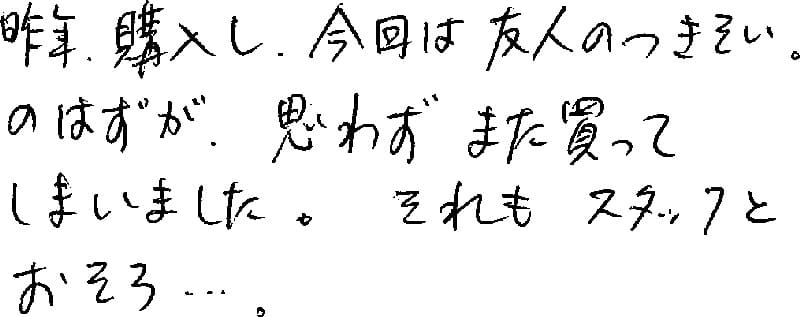 昨年、購入し、今回は友人のつきそい。
のはずが、思わずまた買って
しまいました。それもスタッフと
おそろ…。